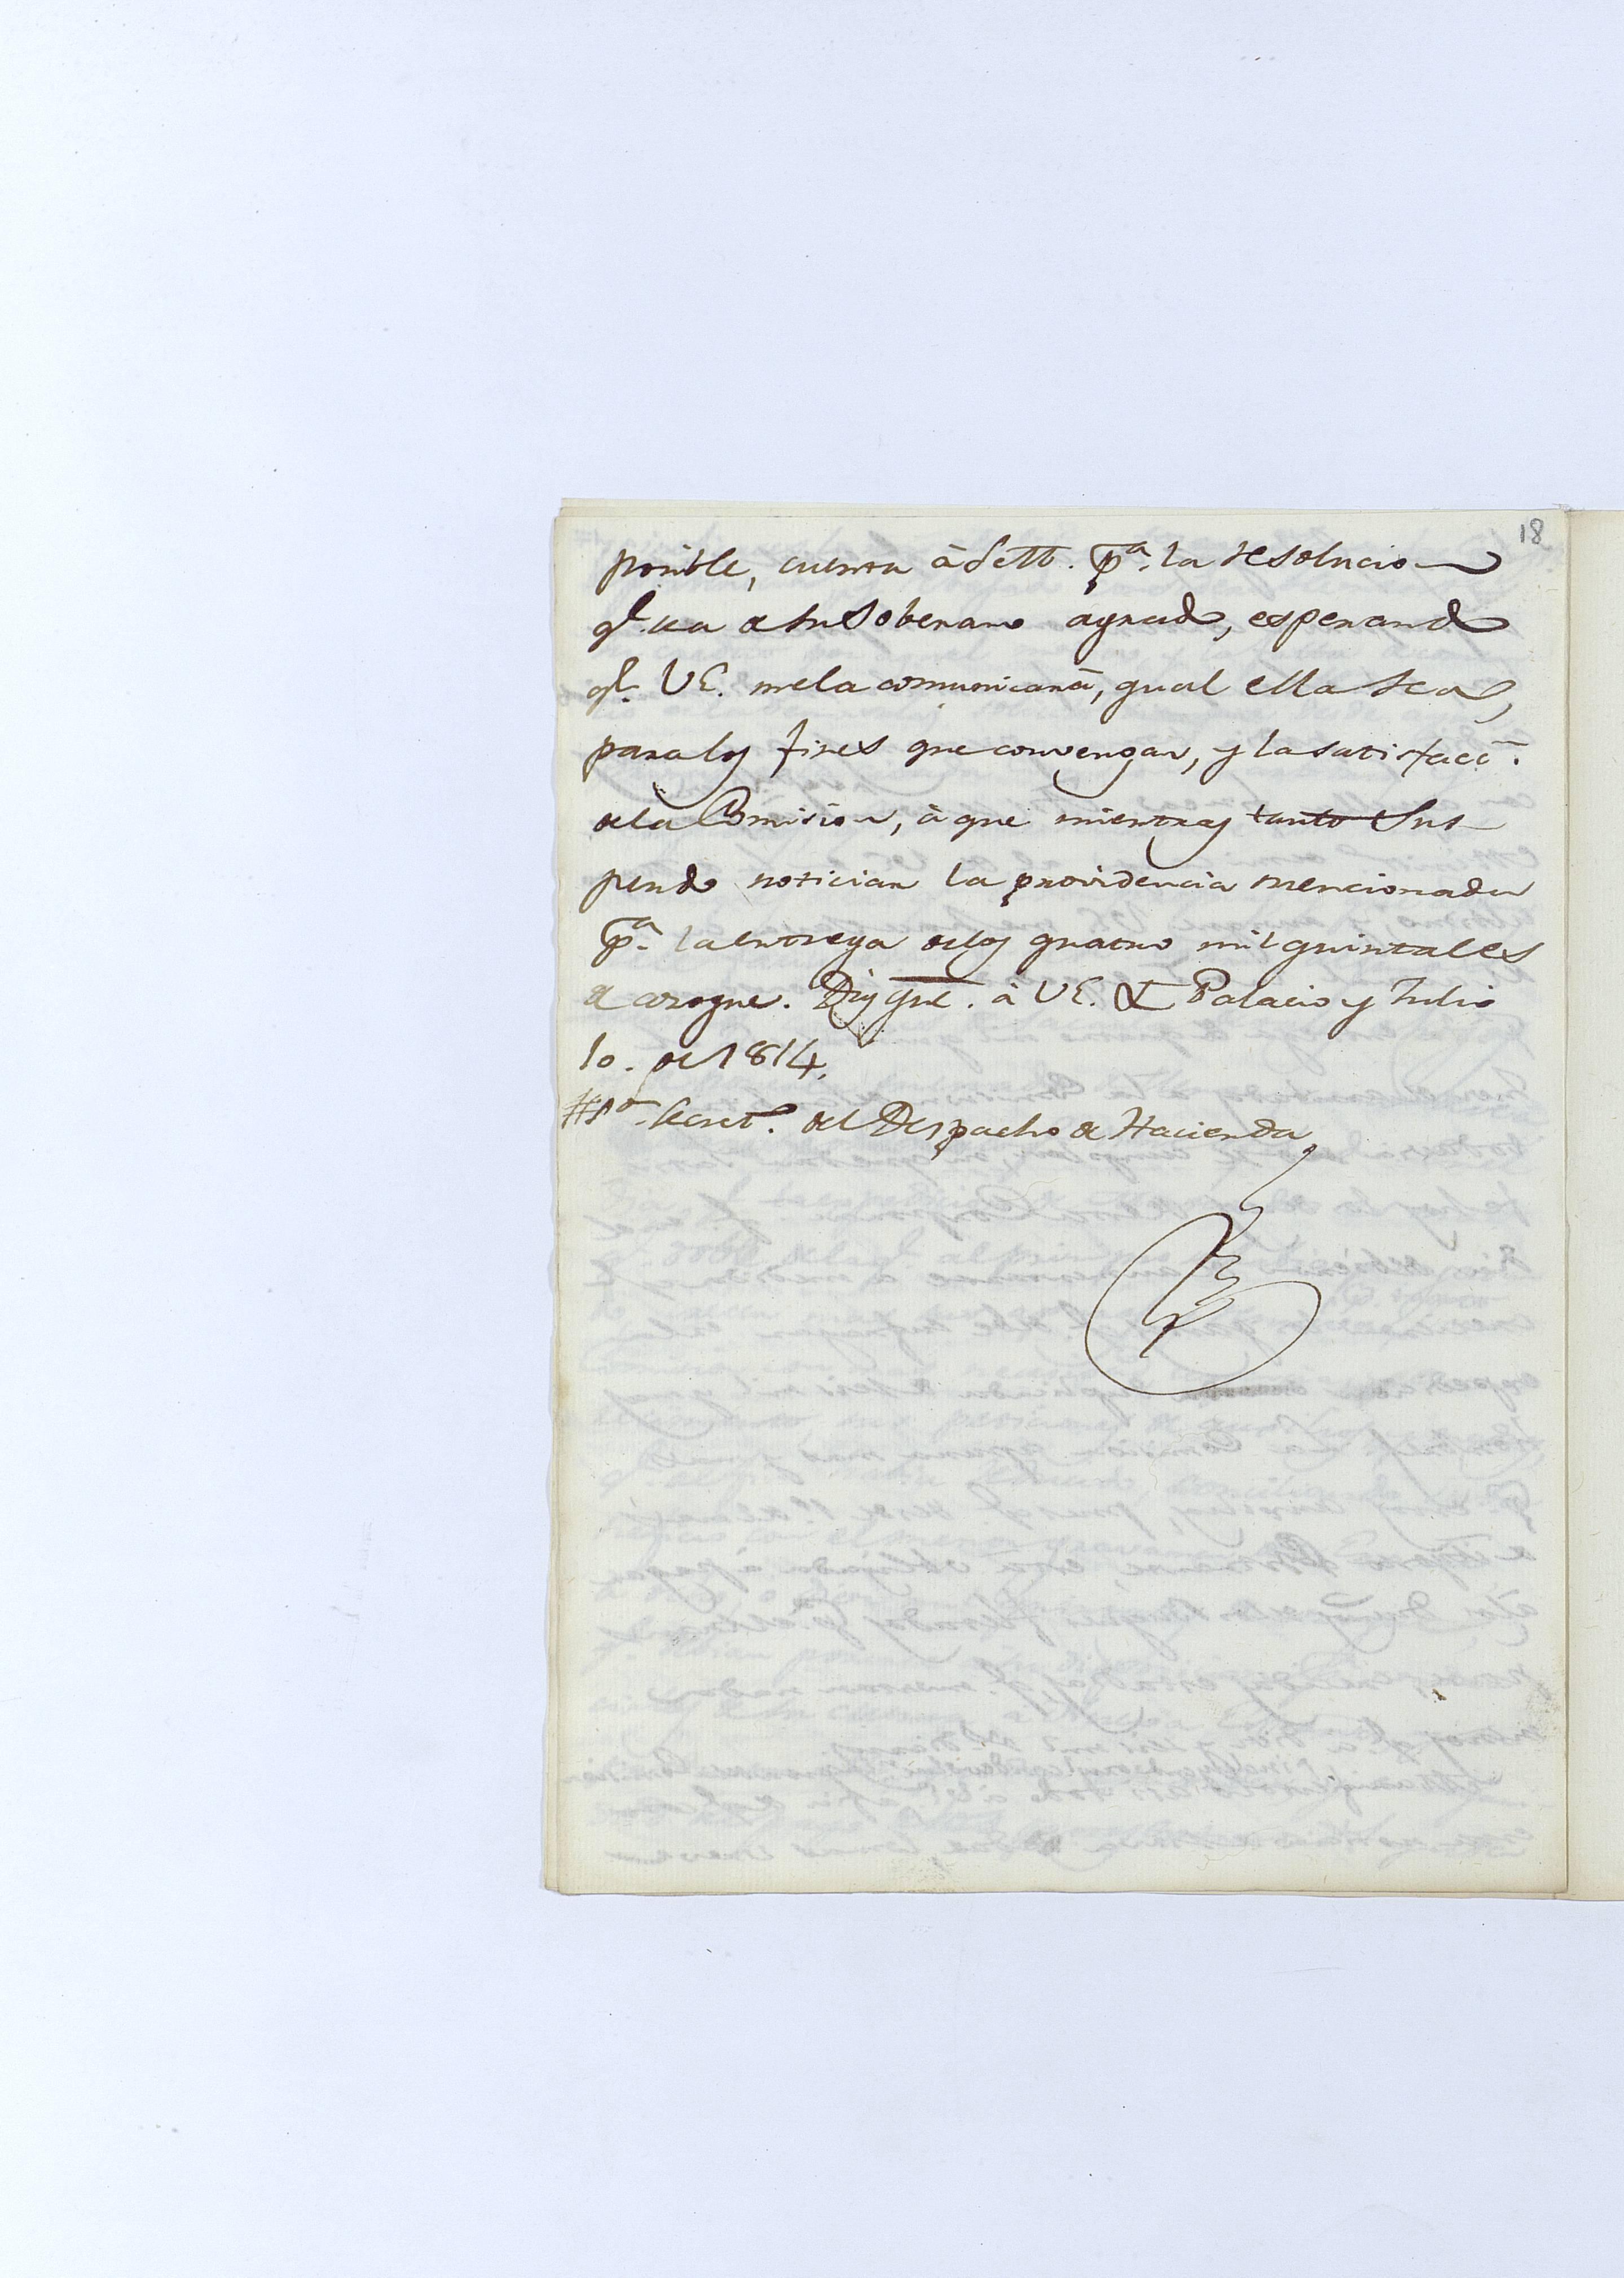 18
posible, cuenta à S.M. pª. la resolucion
qe. sea de su Soberano agrado, esperando
qe. VE. me la comunicarà, qual ella sea,
para los fines que convengan, y la satisfaccn.
de la Comision, à que mientras tanto sus-
pendo noticiar la providencia mencionada
pª. la entrega de los quatro mil quintales
de azogue. Dios gue. à VE. &ª Palacio y Julio
10. de 1814.
Sor. Secretº. del Despacho de Hacienda